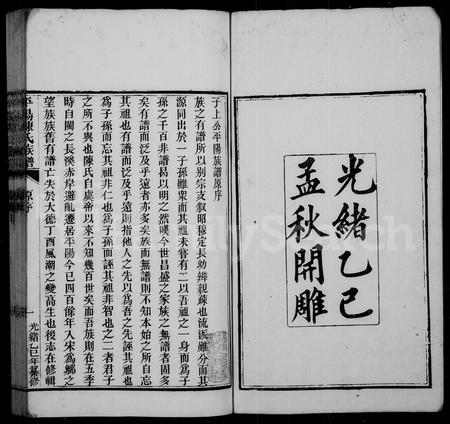 光緒乙巳
孟秋開雕
子上公平陽族譜原序
族之有譜所以別宗支叙昭穆定長幼辨親疎也流派雖分而其
源同出於一子孫雖衆而其祖未嘗有二以吾祖之一身而爲子
孫之千百非譜易以明之然嘆今世昌盛之家族之無譜者固多
矣有譜而泛及乎遠者亦多矣族而無譜則不知本始之所自忘
其祖也有譜而泛及乎遠則指他人之先以爲吾之先誣其祖也
爲子孫而忘其祖非仁也爲子孫而誣其祖非智也之二者君子
之所不與也陳氏自虞帝以來不知幾百世矣而吾族則在五季
時自閩之長溪赤岸避亂遷居平陽今已四百餘年入宋爲鄉之
望族族舊有譜亡失於大德丁酉風潮之變高生也後志在修輯
平陽陳氏族譜
原序
一
光緒乙巳年纂修
FamilySearch